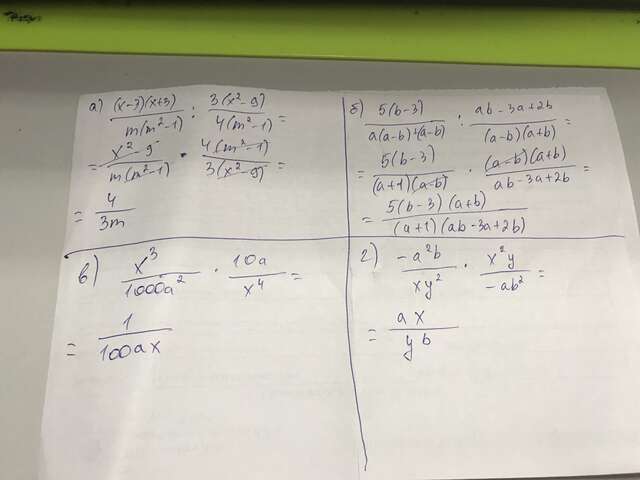 а) (x-3)(x+3) / m(m²-1) : 3(x²-9) / 4(m²-1) =
= x²-9 / m(m²-1) · 4(m²-1) / 3(x²-9) =
= 4 / 3m
б) 5(b-3) / a(a-b)+(a-b) : ab-3a+2b / (a-b)(a+b) =
= 5(b-3) / (a+1)(a-b) · (a-b)(a+b) / ab-3a+2b =
= 5(b-3)(a+b) / (a+1)(ab-3a+2b)
в) x³ / 1000a² · 10a / x⁴ =
= 1 / 100ax
г) -a²b / xy² · x²y / -ab² =
= ax / yb